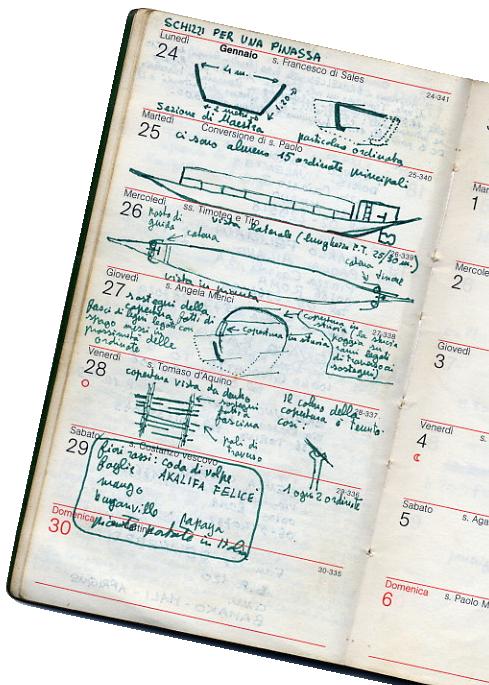 SCHIZZI PER UNA PINASSA
Lunedì
24
Gennaio
s. Francesco di Sales
24-341
4 m.
2 metri
1.20
Sezione di Maestra
particolare ordinata
Martedì
25
Conversione di s. Paolo
25-340
ci sono almeno 15 ordinate principali
Mercoledì
26
ss. Timoteo e Tito
26-339
vista laterale (lunghezza F.T. 25/30 m.)
posto di
guida
catena
catena
timone
vista in pianta
Giovedì
27
s. Angela Merici
27-338
sostegni della
copertura fatti di
fasci di legni legati con
spago messi in
prossimità delle
ordinate
copertura in stuoia
(copertura in
stuoia (la stuoia
poggia su
rami legati
di traverso ai
sostegni)
Venerdì
28
s. Tomaso d'Aquino
28-337
copertura vista da dentro
sostegni
fatti a
fascina
pali di
traverso
Il colmo della
copertura è tenuto
così:
1 ogni 2 ordinate
Sabato
29
s. Costanzo vescovo
29-336
fiori rossi: coda di volpe
foglie AKALIFA FELICE
mango
buganville
Papaya
portato in Italia
Domenica
30
30-335
BAMAKO - MALI
Mar
1
Mercole
2
Giovedì
3
Venerdì
4
s.
Sabato
5
s. Aga
Domenica
6
s. Paolo M